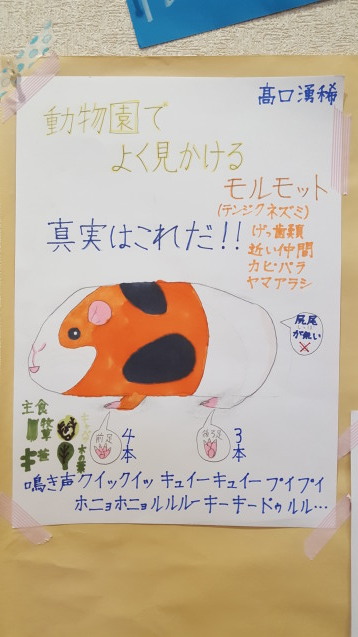 髙口湧稀
動物園で
よく見かける
モルモット
(テンジクネズミ)
げっ歯類
近い仲間
カピバラ
ヤマアラシ
真実はこれだ!!
尻尾
が無い
主食
牧草
木の葉
前足
4
本
後ろ足
3
本
鳴き声クイックイッ キュイーキュイー プイプイ
ホニョホニョルルルーキーギードゥルル…